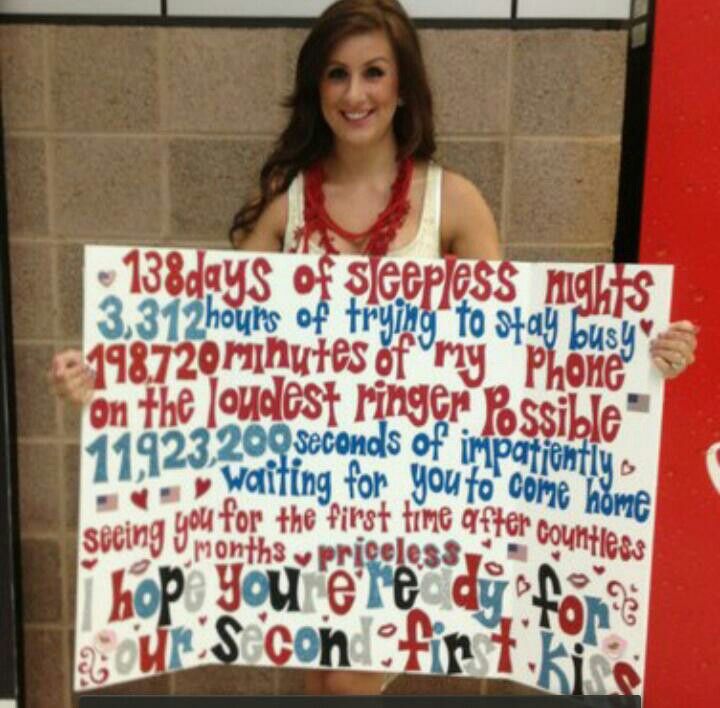 138 days of sleepless nights
3,312 hours of trying to stay busy
198,720 minutes of my phone
on the loudest ringer possible
11,923,200 seconds of impatiently
waiting for you to come home
seeing you for the first time after countless
months priceless
I hope you're ready for
our second first kiss